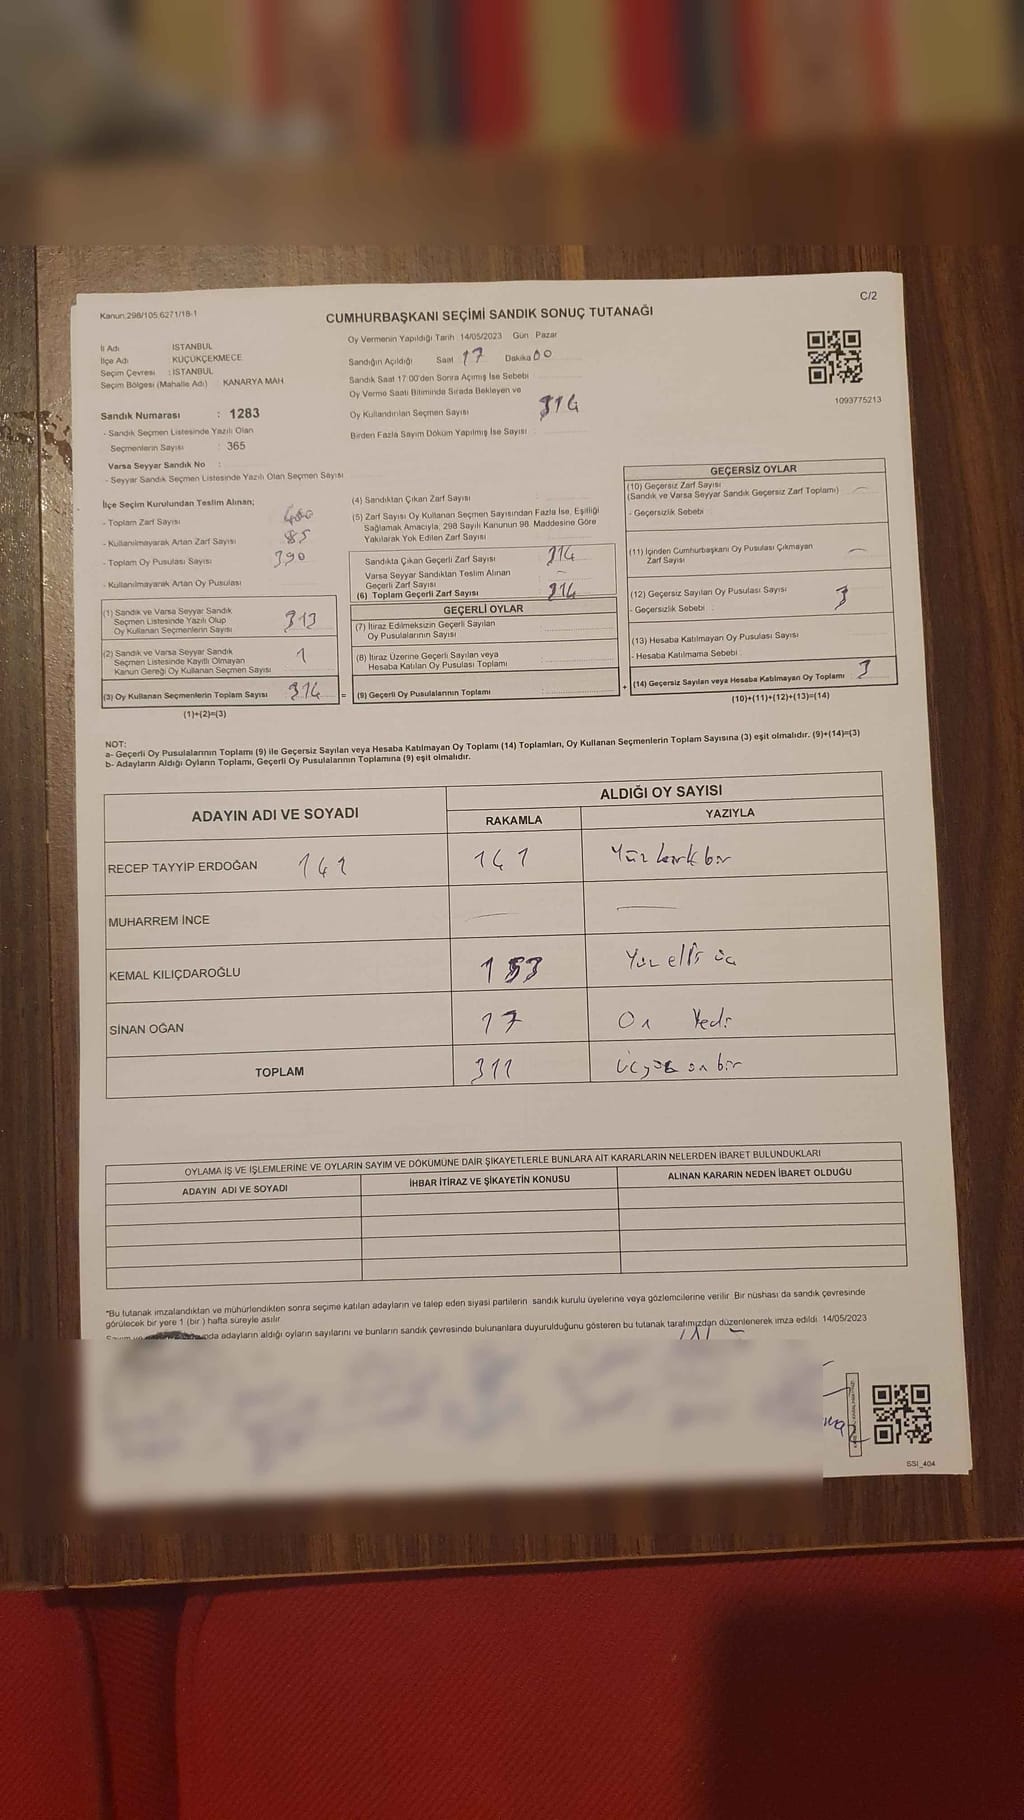 Kanun:298/105.6271/18-1
C/2
CUMHURBAŞKANI SEÇİMİ SANDIK SONUÇ TUTANAĞI
İl Adı İSTANBUL
İlçe Adı KÜÇÜKÇEKMECE
Seçim Çevresi : İSTANBUL
Seçim Bölgesi (Mahalle Adı) KANARYA MAH
Sandık Numarası : 1283
- Sandık Seçmen Listesinde Yazılı Olan
Seçmenlerin Sayısı : 365
Varsa Seyyar Sandık No :
- Seyyar Sandık Seçmen Listesinde Yazılı Olan Seçmen Sayısı
Oy Vermenin Yapıldığı Tarih 14/05/2023 Gün Pazar
Sandığın Açıldığı Saat 17 Dakika 00
Sandık Saat 17:00'den Sonra Açımış İse Sebebi
Oy Verme Saati Bitiminde Sırada Bekleyen ve
Oy Kullandırılan Seçmen Sayısı 314
Birden Fazla Sayım Döküm Yapılmış İse Sayısı
1093775213
İlçe Seçim Kurulundan Teslim Alınan;
- Toplam Zarf Sayısı 400
- Kullanılmayarak Artan Zarf Sayısı 85
- Toplam Oy Pusulası Sayısı 390
- Kullanılmayarak Artan Oy Pusulası
(1) Sandık ve Varsa Seyyar Sandık
Seçmen Listesinde Yazılı Olup
Oy Kullanan Seçmenlerin Sayısı 313
(2) Sandık ve Varsa Seyyar Sandık
Seçmen Listesinde Kayıtlı Olmayan
Kanun Gereği Oy Kullanan Seçmen Sayısı 1
(3) Oy Kullanan Seçmenlerin Toplam Sayısı 314
(1)+(2)=(3)
(4) Sandıktan Çıkan Zarf Sayısı
(5) Zarf Sayısı Oy Kullanan Seçmen Sayısından Fazla İse, Eşitliği
Sağlamak Amacıyla, 298 Sayılı Kanunun 98. Maddesine Göre
Yakılarak Yok Edilen Zarf Sayısı
Sandıkta Çıkan Geçerli Zarf Sayısı 314
Varsa Seyyar Sandıktan Teslim Alınan
Geçerli Zarf Sayısı –
(6) Toplam Geçerli Zarf Sayısı 314
GEÇERLİ OYLAR
(7) İtiraz Edilmeksizin Geçerli Sayılan
Oy Pusulalarının Sayısı
(8) İtiraz Üzerine Geçerli Sayılan veya
Hesaba Katılan Oy Pusulası Toplamı
= (9) Geçerli Oy Pusulalarının Toplamı :
GEÇERSİZ OYLAR
(10) Geçersiz Zarf Sayısı
(Sandık ve Varsa Seyyar Sandık Geçersiz Zarf Toplamı) –
- Geçersizlik Sebebi
(11) İçinden Cumhurbaşkanı Oy Pusulası Çıkmayan
Zarf Sayısı –
(12) Geçersiz Sayılan Oy Pusulası Sayısı 3
- Geçersizlik Sebebi :
(13) Hesaba Katılmayan Oy Pusulası Sayısı
- Hesaba Katılmama Sebebi
+ (14) Geçersiz Sayılan veya Hesaba Katılmayan Oy Toplamı : 3
(10)+(11)+(12)+(13)=(14)
NOT:
a- Geçerli Oy Pusulalarının Toplamı (9) ile Geçersiz Sayılan veya Hesaba Katılmayan Oy Toplamı (14) Toplamları, Oy Kullanan Seçmenlerin Toplam Sayısına (3) eşit olmalıdır. (9)+(14)=(3)
b- Adayların Aldığı Oyların Toplamı, Geçerli Oy Pusulalarının Toplamına (9) eşit olmalıdır.
ADAYIN ADI VE SOYADI
ALDIĞI OY SAYISI
RAKAMLA YAZIYLA
RECEP TAYYİP ERDOĞAN 141 141 Yüz kırk bir
MUHARREM İNCE — —
KEMAL KILIÇDAROĞLU 153 Yüz elli üç
SİNAN OĞAN 17 On Yedi
TOPLAM 311 Üçyüz on bir
OYLAMA İŞ VE İŞLEMLERİNE VE OYLARIN SAYIM VE DÖKÜMÜNE DAİR ŞİKAYETLERLE BUNLARA AİT KARARLARIN NELERDEN İBARET BULUNDUKLARI
ADAYIN ADI VE SOYADI İHBAR İTİRAZ VE ŞİKAYETİN KONUSU ALINAN KARARIN NEDEN İBARET OLDUĞU
*Bu tutanak imzalandıktan ve mühürlendikten sonra seçime katılan adayların ve talep eden siyasi partilerin sandık kurulu üyelerine veya gözlemcilerine verilir Bir nüshası da sandık çevresinde
görülecek bir yere 1 (bir ) hafta süreyle asılır
adayların aldığı oyların sayılarını ve bunların sandık çevresinde bulunanlara duyurulduğunu gösteren bu tutanak tarafımızdan düzenlenerek imza edildi 14/05/2023
SSI_404